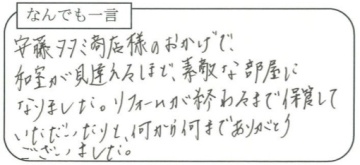 なんでも一言
安藤タタミ商店様のおかげで、
和室が見違えるほど、素敵な部屋に
なりました。リフォームが終わるまで保管して
いただいたりと、何から何までありがとう
ございました。